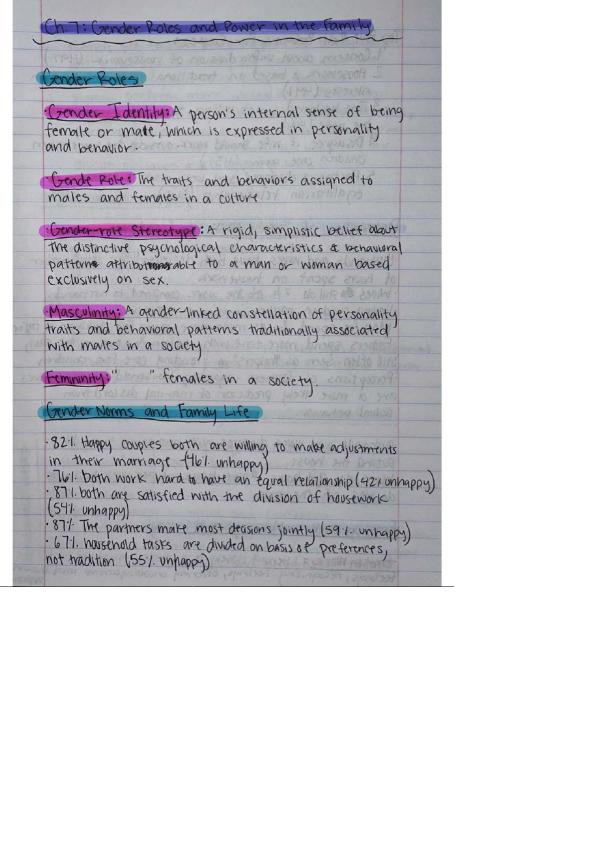 Ch 7: Gender Roles and Power in the Family
Gender Roles
·Gender Identity: A person's internal sense of being
female or male, which is expressed in personality
and behavior.
·Gende Role: The traits and behaviors assigned to
males and females in a culture
·Gender-role Stereotype: A rigid, simplistic belief about
the distinctive psychological characteristics & behavioral
patterns attributable to a man or woman based
exclusively on sex.
·Masculinity: A gender-linked constellation of personality
traits and behavioral patterns traditionally associated
with males in a society
Femininity: " " females in a society.
Gender Norms and Family Life
·82% Happy couples both are willing to make adjustments
in their marriage (46% unhappy)
·76% both work hard to have an equal relationship (42% unhappy)
·87% both are satisfied with the division of housework
(54% unhappy)
·87% The partners make most decisions jointly (59% unhappy)
·67% household tasks are divided on basis of preferences,
not tradition (55% unhappy)